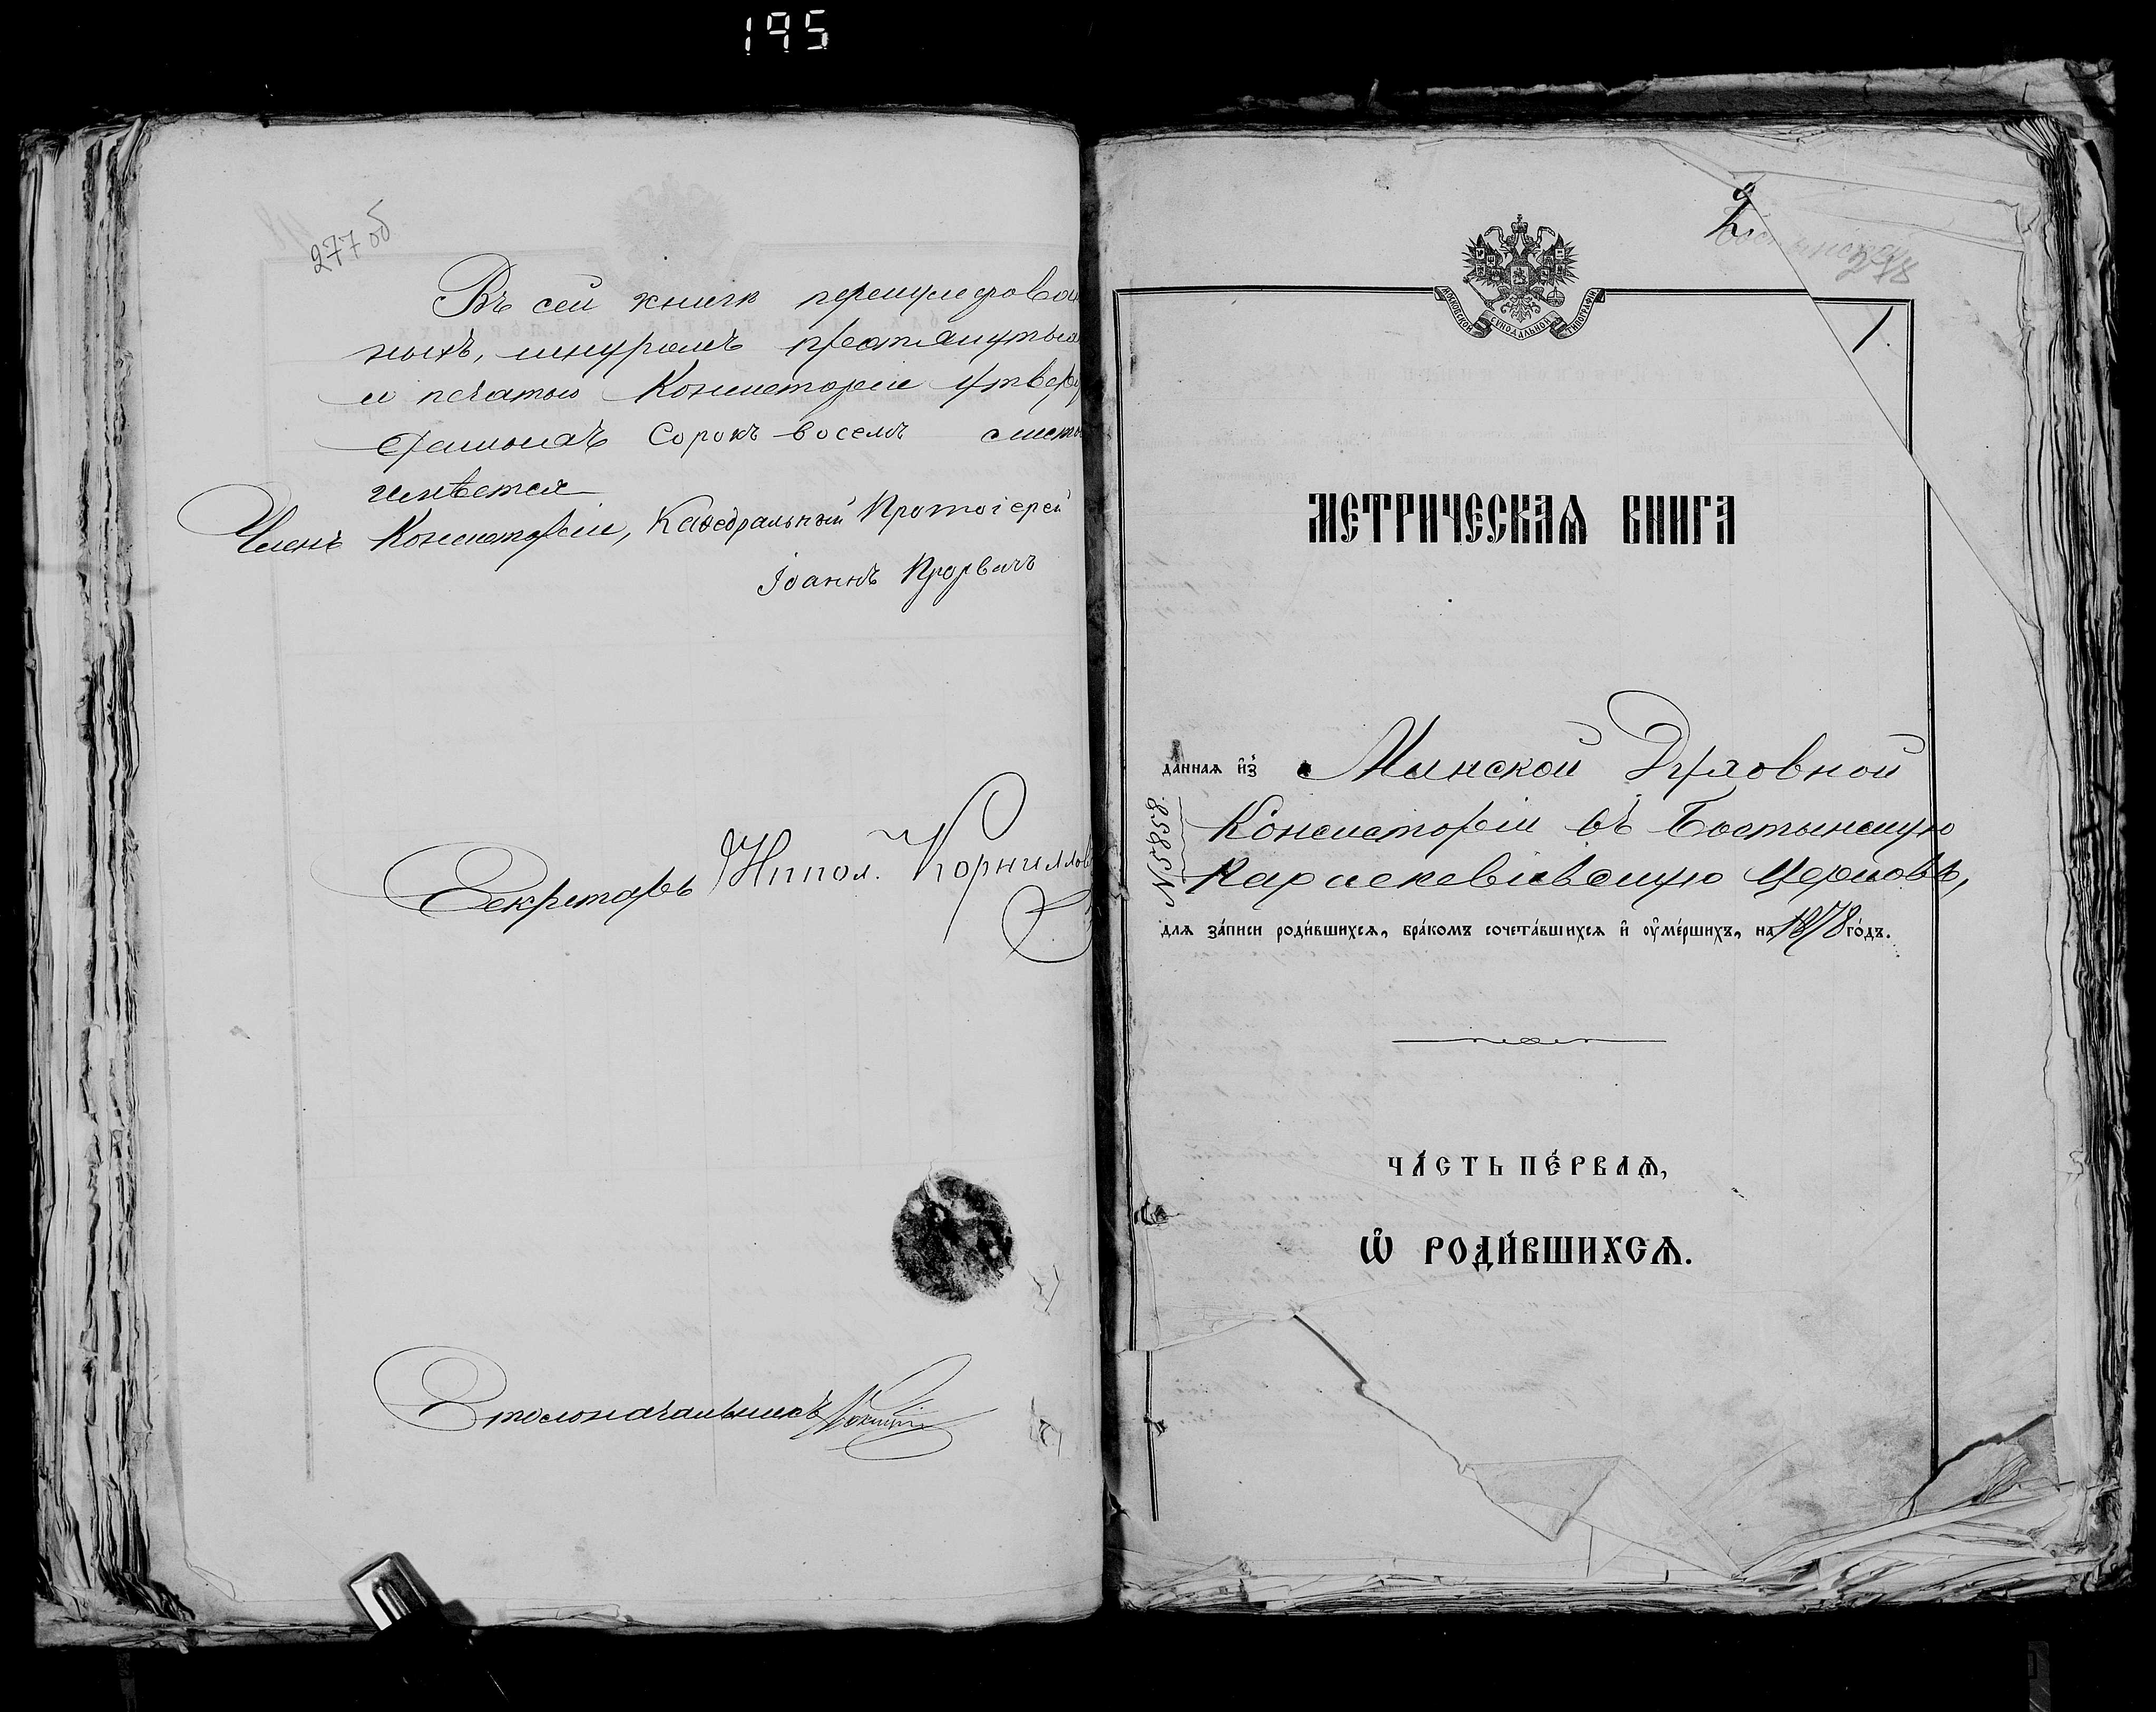 195
277 об
Въ сей книгѣ перенумерован
ныхъ, шнуромъ протянутыхъ
и печатью Консисторіи утверж
денныхъ сорокъ восемь листовъ
имѣется
Членъ Консисторіи, Каѳедральный Протоіерей
Іоаннъ
Секретарь Иппол. Корниллов
Столоначальникъ
2.
278
1.
МОСКОВСКОЙ СѴНОДАЛЬНОЙ ТИПОГРАФІИ
МЕТРИЧЕСКАѦ КНИГА
да́ннаѧ и҆з̾ Минской Духовной
Консисторіи въ Бостынскую
Параскевіевскую Церковь,
№ 5858
длѧ за́писи роди́вшихсѧ, бра́комъ сочета́вшихсѧ и҆ оу҆ме́ршихъ, на 1878 го́дъ.
ЧА́СТЬ ПЕ́РВАѦ,
Ѽ РОДИ́ВШИХСѦ.